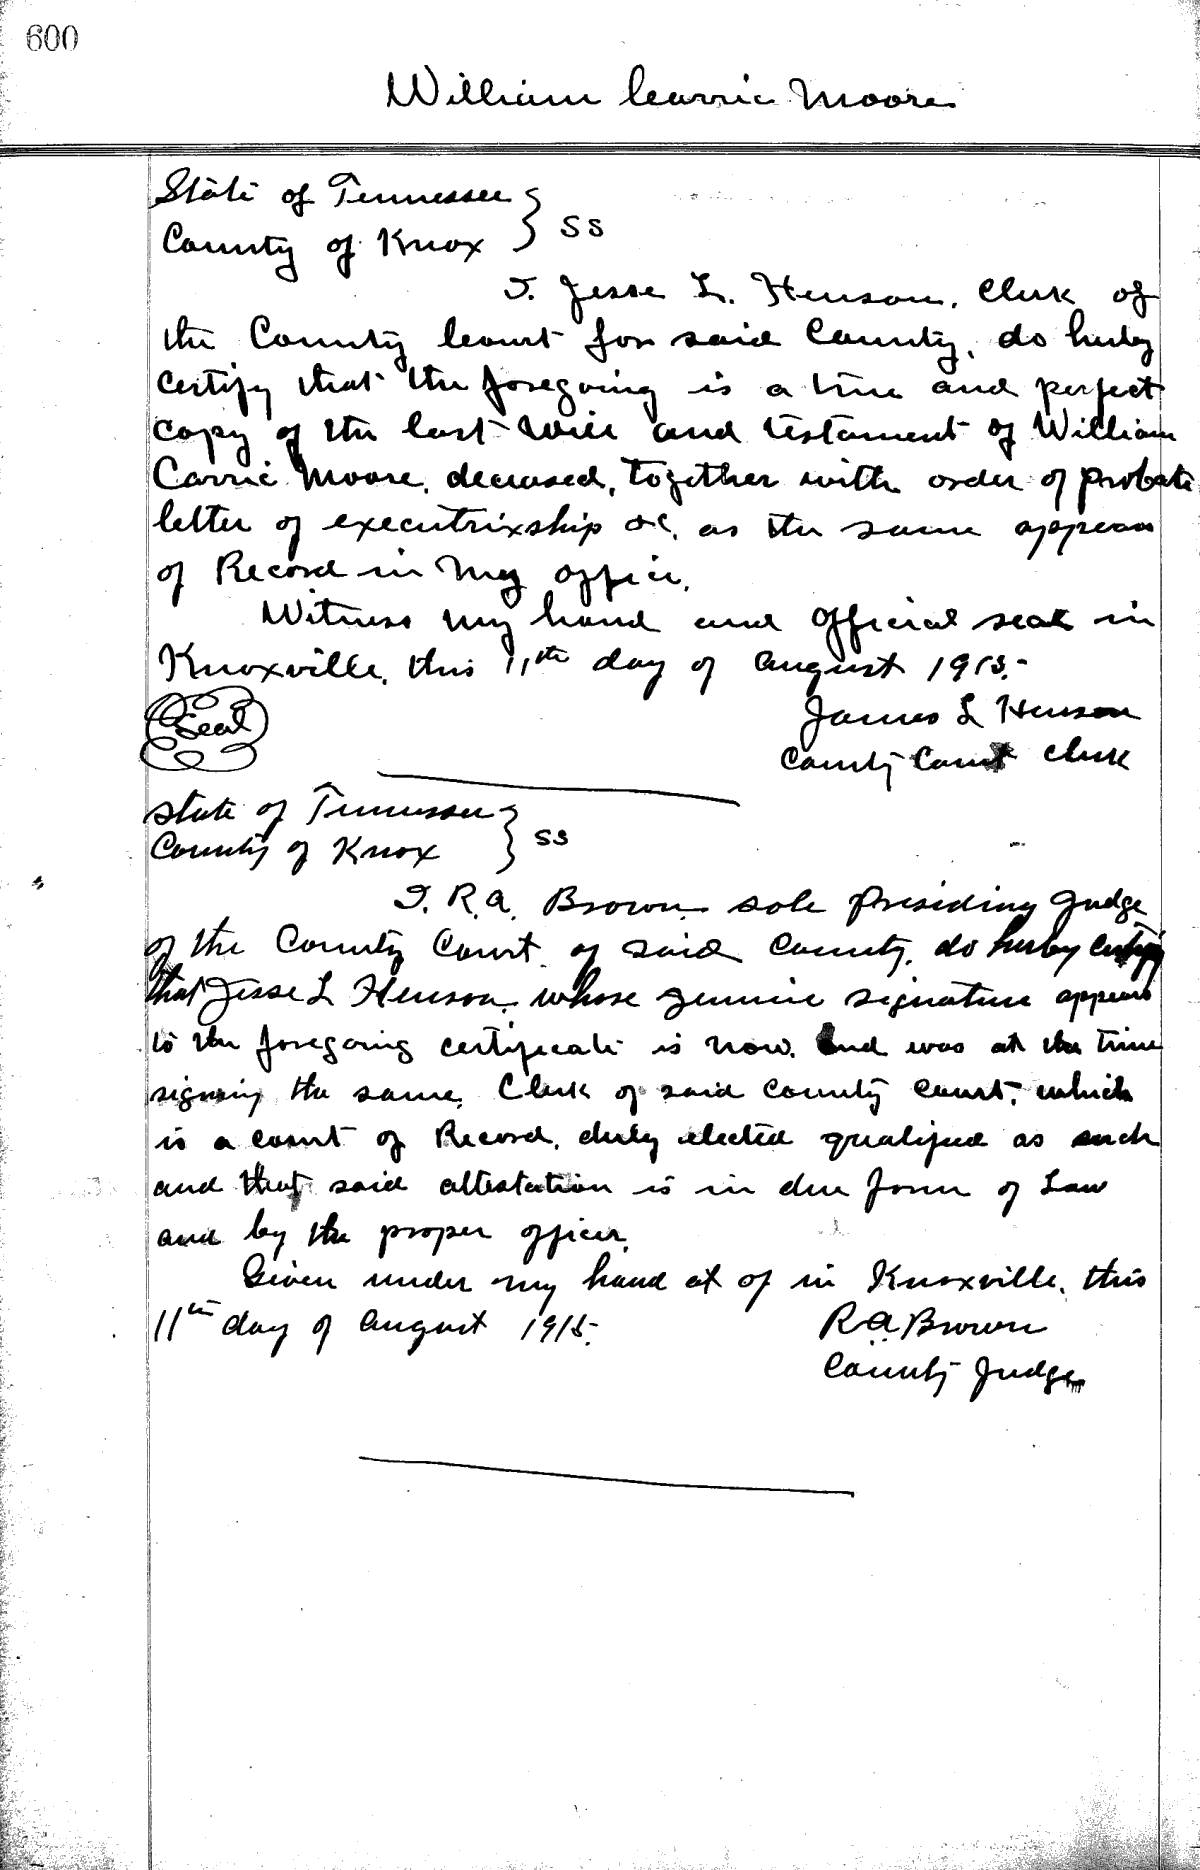 600
William Carric Moore
State of Tennessee } SS
County of Knox
I. Jesse L. Henson, Clerk of
the County Court for said County, do herby
certify that the foregoing is a true and perfect
copy of the last will and testament of William
Carric Moore, deceased, together with order of probate
letter of executrixship &c. as the same appears
of Record in my office.
Witness my hand and official seal in
Knoxville, this 11th day of August 1915.
Seal
James L Henson
County Court Clerk
State of Tennessee } SS
County of Knox
I. R.A. Brown sole Presiding Judge
of the County Court of said County, do herby certify
that Jesse L Henson, whose genuine signature appears
to the foregoing certificate is now, and was at the time
signing the same, Clerk of said County Court, which
is a court of Record, duly elected qualified as such
and that said attestation is in due form of Law
and by the proper officer.
Given under my hand at of in Knoxville, this
11th day of August 1915.
R A Brown
County Judge